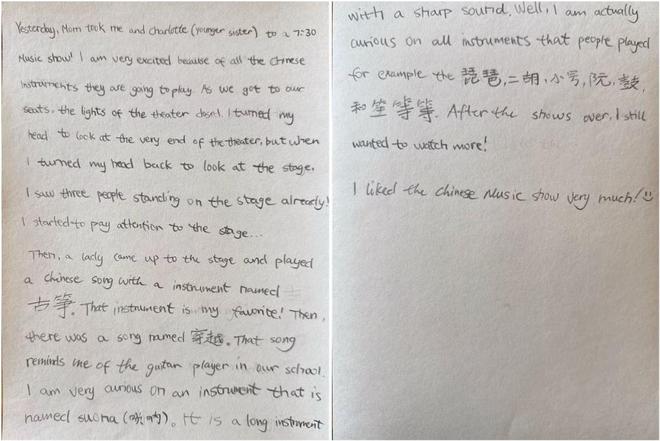 Yesterday, Mom took me and Charlotte (younger sister) to a 7:30
Music show! I am very excited because of all the Chinese
instruments they are going to play. As we got to our
seats, the lights of the theater I turned my
head to look at the very end of the theater, but when
I turned my head back to look at the stage.
I saw three people standing on the stage already!
I started to pay attention to the stage...
Then, a lady came up to the stage and played
a Chinese song with a instrument named
古筝. That instrument is my favorite! Then,
there was a song named 穿越. That song
reminds me of the guitar player in our school.
I am very curious on an instrument that is
named suona (唢呐). It is a long instrument
with a sharp sound. Well, I am actually
curious on all instruments that people played
for example the 琵琶,二胡,小号,阮,鼓,
和笙等等. After the shows over, I still
wanted to watch more!
I liked the Chinese Music show very much!☺